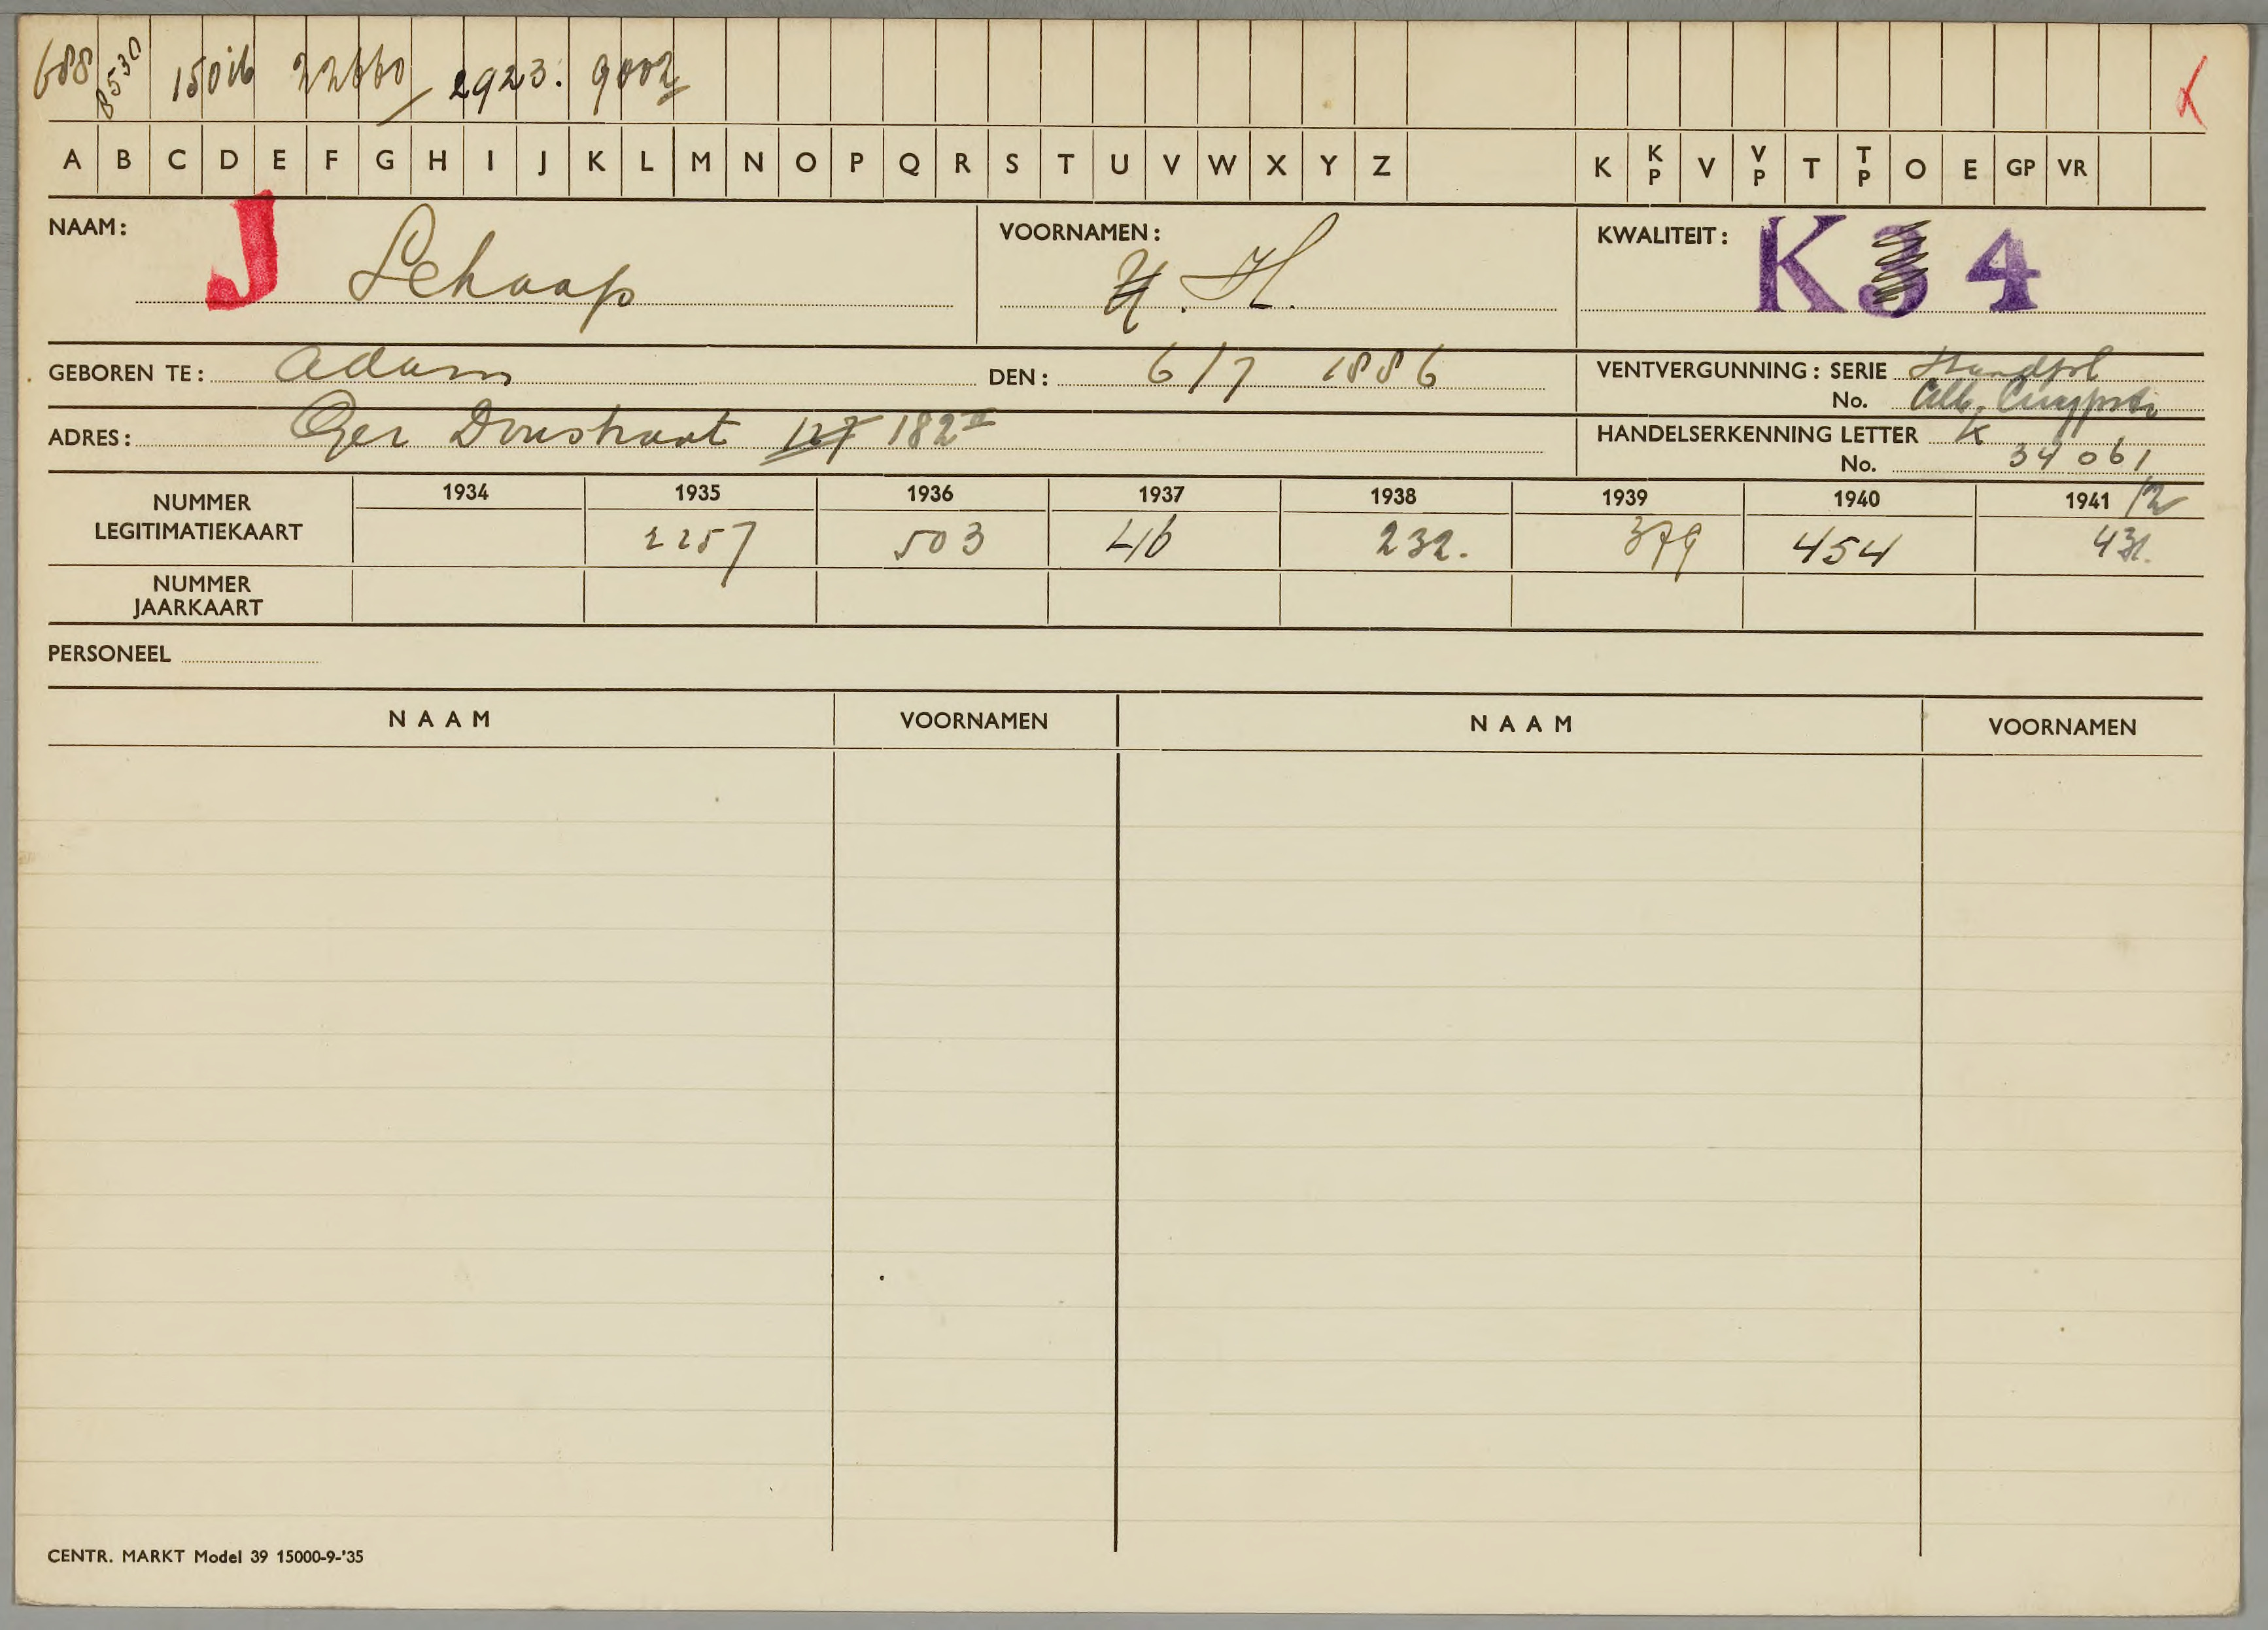 688 8530 15016 22660 / 2923. 9002
A B C D E F G H I J K L M N O P Q R S T U V W X Y Z K KP V VP T TP O E GP VR
NAAM: J Schaap VOORNAMEN: H. KWALITEIT: K 3 4
GEBOREN TE: Adam DEN: 6/7 1886 VENTVERGUNNING: SERIE Standpl
No. Alb. Cuypstr
ADRES: Ger Doustraat 127 182 II HANDELSERKENNING LETTER K
No. 34061
NUMMER LEGITIMATIEKAART 1934 1935 1936 1937 1938 1939 1940 1941 /2
2257 503 46 232. 379 454 431.
NUMMER JAARKAART
PERSONEEL
NAAM VOORNAMEN NAAM VOORNAMEN
CENTR. MARKT Model 39 15000-9-'35